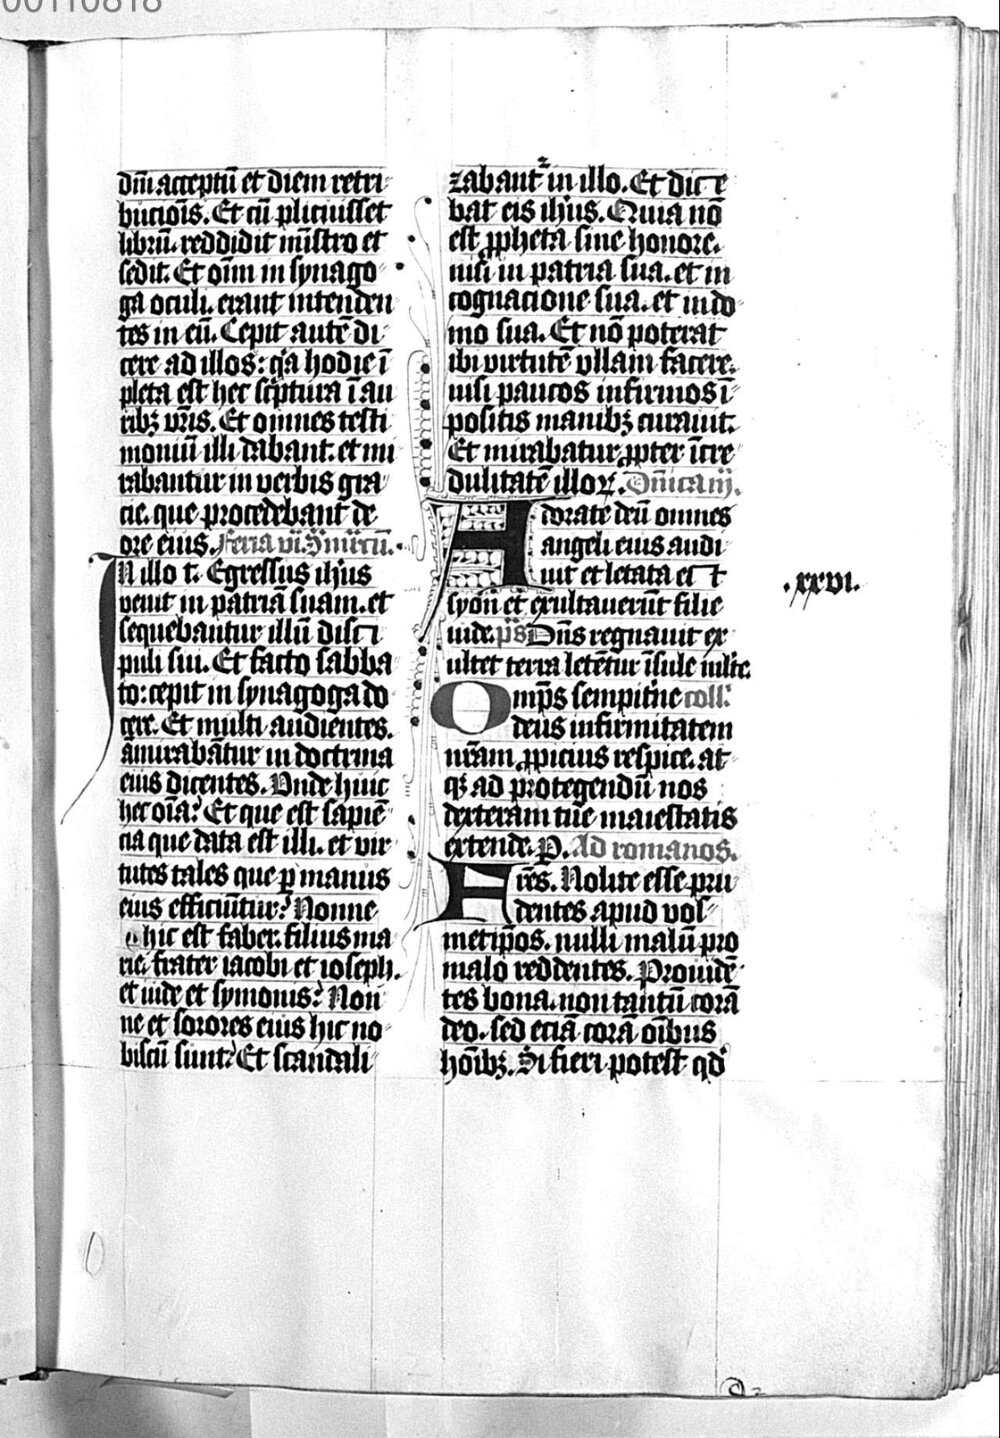 00110818
dn̄i acceptū et diem retri
bucioīs. Et cū plicuisset
librū. reddidit mīstro et
sedit. Et oīm in synago
ga oculi. erant intenden
tes in eū. Cepit autē di
cere ad illos: qͣa hodie ī
pleta est hec scͥptura ī au
ribꝫ vr̄is. Et omnes testi
moniū illi dabant. et mi
rabantur in verbis gra
cie. que procedebant de
ore eius. Feria vi. Sm̄ mͬcū.
IN illo t. Egressus ih̄us
venit in patriā suam. et
sequebantur illū disci
puli sui. Et facto sabba
to: cepit in synagoga do
cere. Et multi audientes.
āmirabātur in doctrina
eius dicentes. Unde huic
hec oīa? Et que est sapiē
cia que data est illi. et vir
tutes tales que ꝑ manus
eius efficiūtur? Nonne
hic est faber. filius ma
rie. frater iacobi et ioseph.
et iude et symonis? Non
ne et sorores eius hic no
biscū sunt? Et scandali
zabantᷣ in illo. Et dice
bat eis ih̄us. Quia nō
est ꝓpheta sine honore.
nisi in patria sua. et in
cognacione sua. et in do
mo sua. Et nō poterat
ibi virtutē vllam facere.
nisi paucos infirmos ī
positis manibꝫ curauit.
Et mirabatur ꝓpter īcre
dulitatē illoꝝ. Dn̄ica iij.
Adorate deū omnes
angeli eius audi
uit et letata est
syon et exultauerūt filie
iude. ps̄ Dn̄s regnauit ex
ultet terra letētur īsule mlͭe.
Omp̄s sempitͥne coll'.
deus infirmitatem
nr̄am ꝓpicius respice. at
qꝫ ad protegendū nos
dexteram tue maiestatis
extende. P. Ad romanos.
Fr̄es. Nolite esse pru
dentes apud vos
metip̄os. nulli malū pro
malo reddentes. Prouidē
tes bona. non tantū corā
deo. sed eciā corā oībus
hōībꝫ. Si fieri potest qd'
.xxvi.